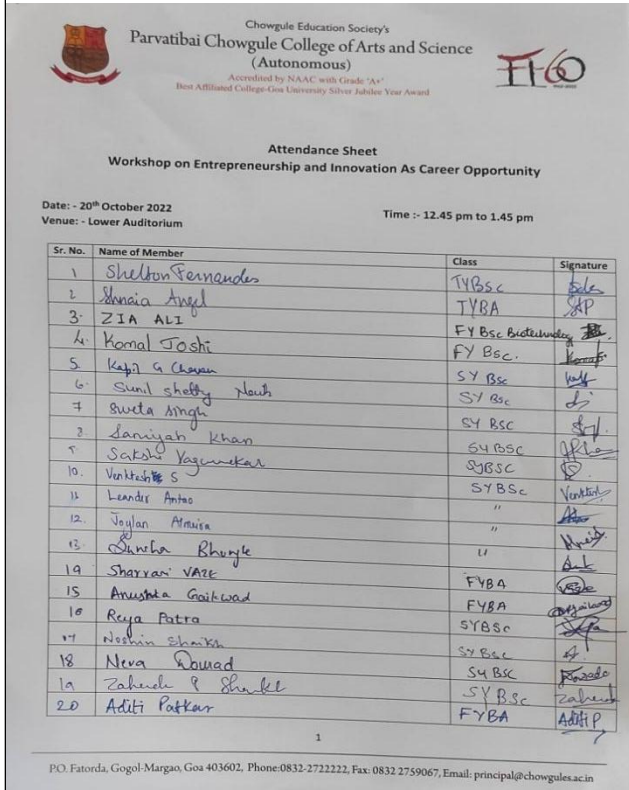 Chowgule Education Society's
Parvatibai Chowgule College of Arts and Science
(Autonomous)
Accredited by NAAC with Grade 'A+'
Best Affiliated College-Goa University Silver Jubilee Year Award
Attendance Sheet
Workshop on Entrepreneurship and Innovation As Career Opportunity
Date: - 20th October 2022
Time :- 12.45 pm to 1.45 pm
Venue: - Lower Auditorium
Sr. No. Name of Member Class Signature
1 Shelton Fernandes TYBSc
2 Angel TYBA
3. ZIA ALI FY BSc Biotechnology
4. Komal Joshi FY BSc.
5. Kapil G Chavan SY BSc
6. Sunil Shetty SY BSc
7 Sweta Singh SY BSC
8. Saniyah Khan SYBSC
9 Sakshi SYBSC
10. Venktesh S SYBSc
11 Leander Antao "
12. Joylan "
13. "
14 Sharvari VAZE FYBA
15 Anushka Gaikwad FYBA
16 Reya Patra SYBSc
17 Noshin Shaikh SY BSc
18 SyBSC
19 SYBSc
20 Aditi Patkar FYBA Aditi P
1
P.O. Fatorda, Gogol-Margao, Goa 403602, Phone:0832-2722222, Fax: 0832 2759067, Email: principal@chowgules.ac.in